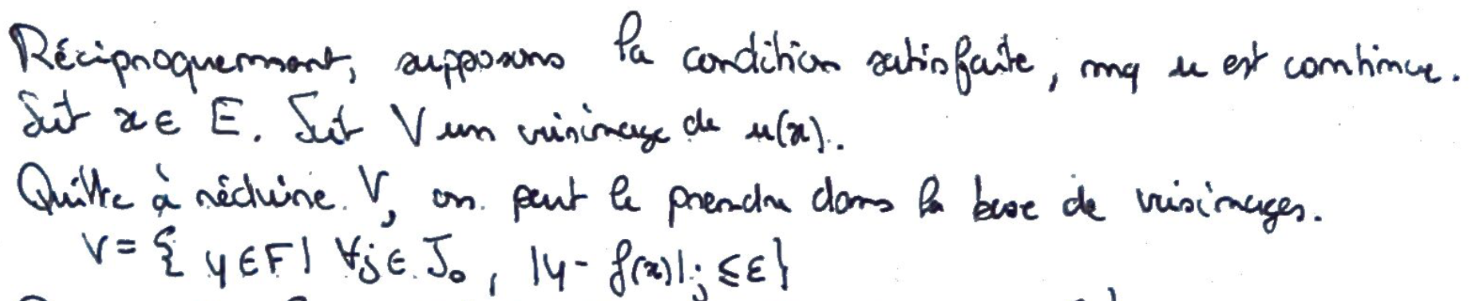 Réciproquement, supposons la condition satisfaite, mq u est continue.
Soit x ∈ E. Soit V un voisinage de u(x).
Quitte à réduire V, on peut le prendre dans la base de voisinages.
V = { y ∈ F | ∀j ∈ J₀, |y - f(x)|ⱼ ≤ ε }